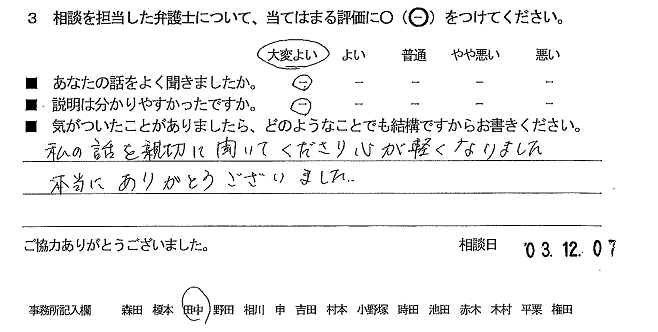 3 相談を担当した弁護士について、当てはまる評価に○（㊀）をつけてください。
大変よい よい 普通 やや悪い 悪い
■ あなたの話をよく聞きましたか。 － － － － －
■ 説明は分かりやすかったですか。 － － － － －
■ 気がついたことがありましたら、どのようなことでも結構ですからお書きください。
私の話を親切に聞いてくださり心が軽くなりました
本当にありがとうございました。
ご協力ありがとうございました。 相談日 '03.12.07
事務所記入欄 森田 榎本 田中 野田 相川 申 吉田 村本 小野塚 時田 池田 赤木 木村 平栗 権田